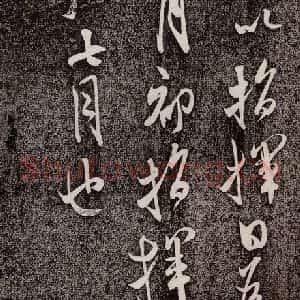 以指揮日
月初指揮
七月也